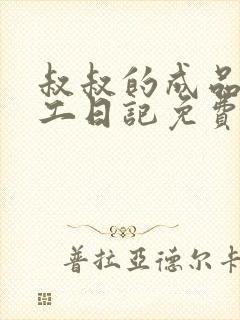 叔叔的成品
工日記免費
普拉亞德尔卡